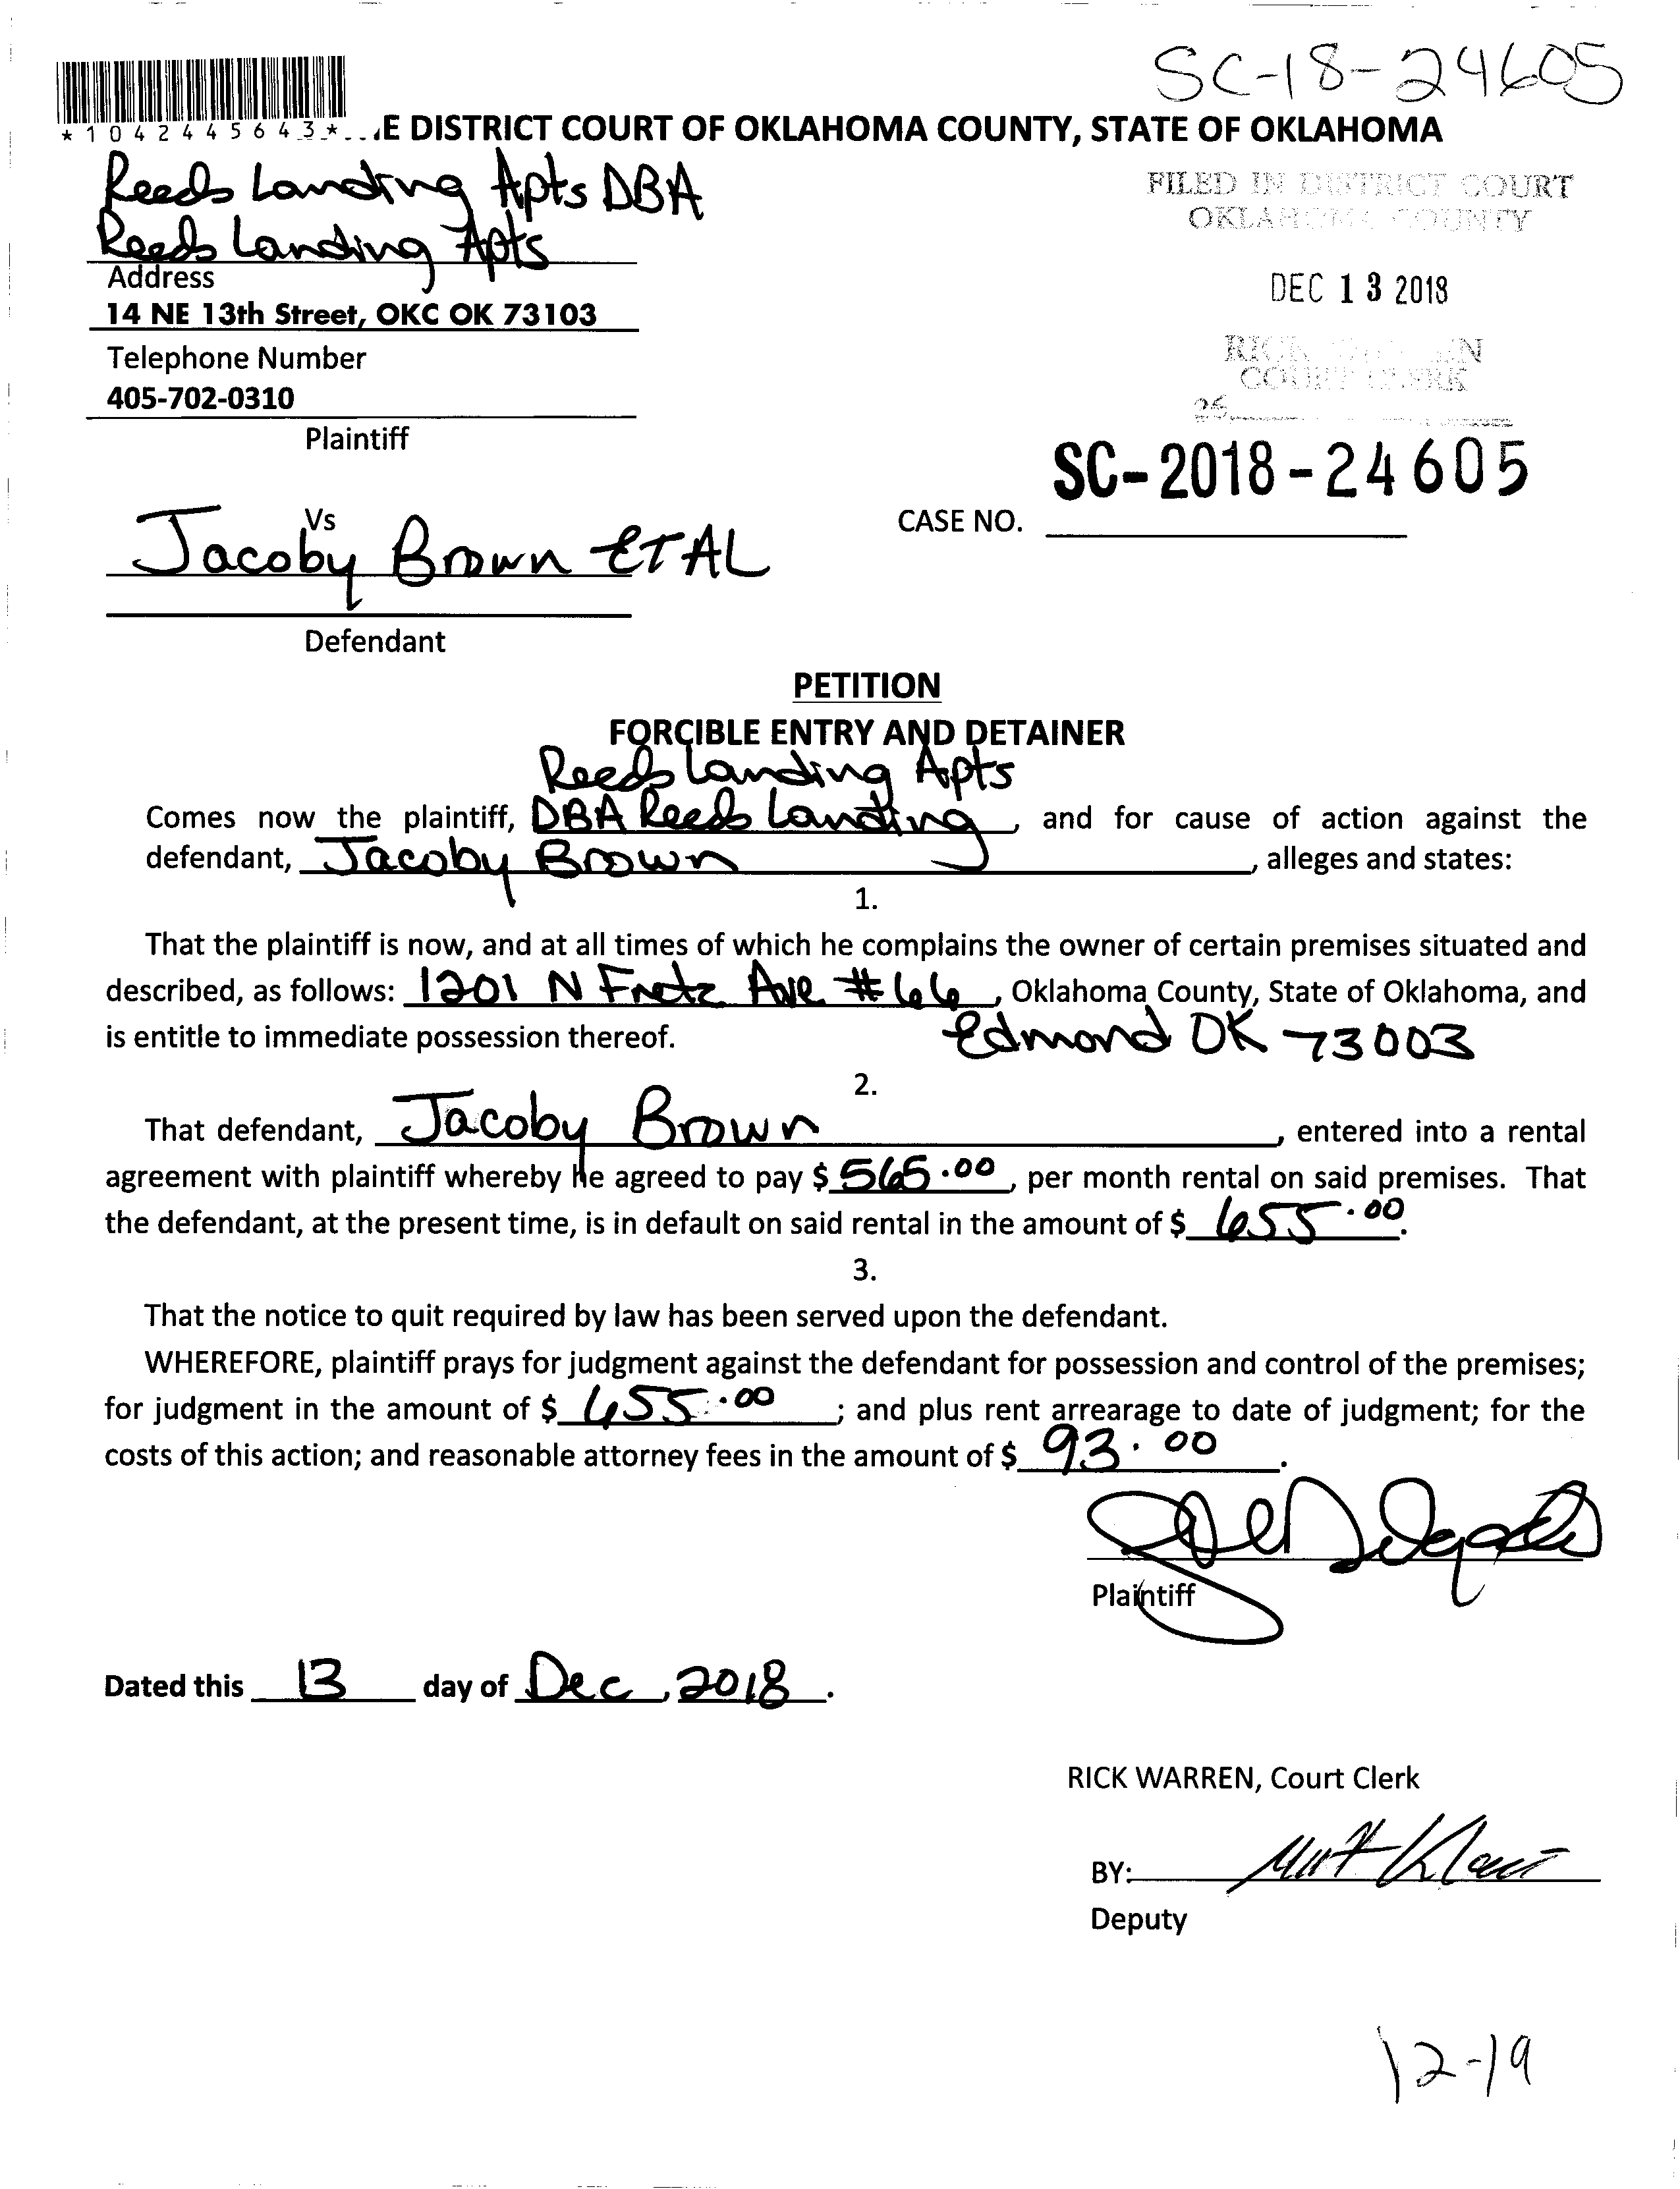 SC-18-24605
*1042445643*
E DISTRICT COURT OF OKLAHOMA COUNTY, STATE OF OKLAHOMA
Reeds Landing Apts DBA
Reeds Landing Apts
Address
14 NE 13th Street, OKC OK 73103
Telephone Number
405-702-0310
Plaintiff
FILED IN DISTRICT COURT
OKLAHOMA COUNTY
DEC 13 2018
COURT CLERK
SC-2018-24605
CASE NO.
Vs
Jacoby Brown ET AL
Defendant
PETITION
FORCIBLE ENTRY AND DETAINER
Reeds Landing Apts
Comes now the plaintiff, DBA Reeds Landing, and for cause of action against the
defendant, Jacoby Brown, alleges and states:
1.
That the plaintiff is now, and at all times of which he complains the owner of certain premises situated and
described, as follows: 1201 N Fretz Ave #66, Oklahoma County, State of Oklahoma, and
is entitle to immediate possession thereof. Edmond OK 73003
2.
That defendant, Jacoby Brown, entered into a rental
agreement with plaintiff whereby he agreed to pay $ 565.00, per month rental on said premises. That
the defendant, at the present time, is in default on said rental in the amount of $ 655.00.
3.
That the notice to quit required by law has been served upon the defendant.
WHEREFORE, plaintiff prays for judgment against the defendant for possession and control of the premises;
for judgment in the amount of $ 655.00; and plus rent arrearage to date of judgment; for the
costs of this action; and reasonable attorney fees in the amount of $ 93.00.
Plaintiff
Dated this 13 day of Dec, 2018.
RICK WARREN, Court Clerk
BY:
Deputy
12-19